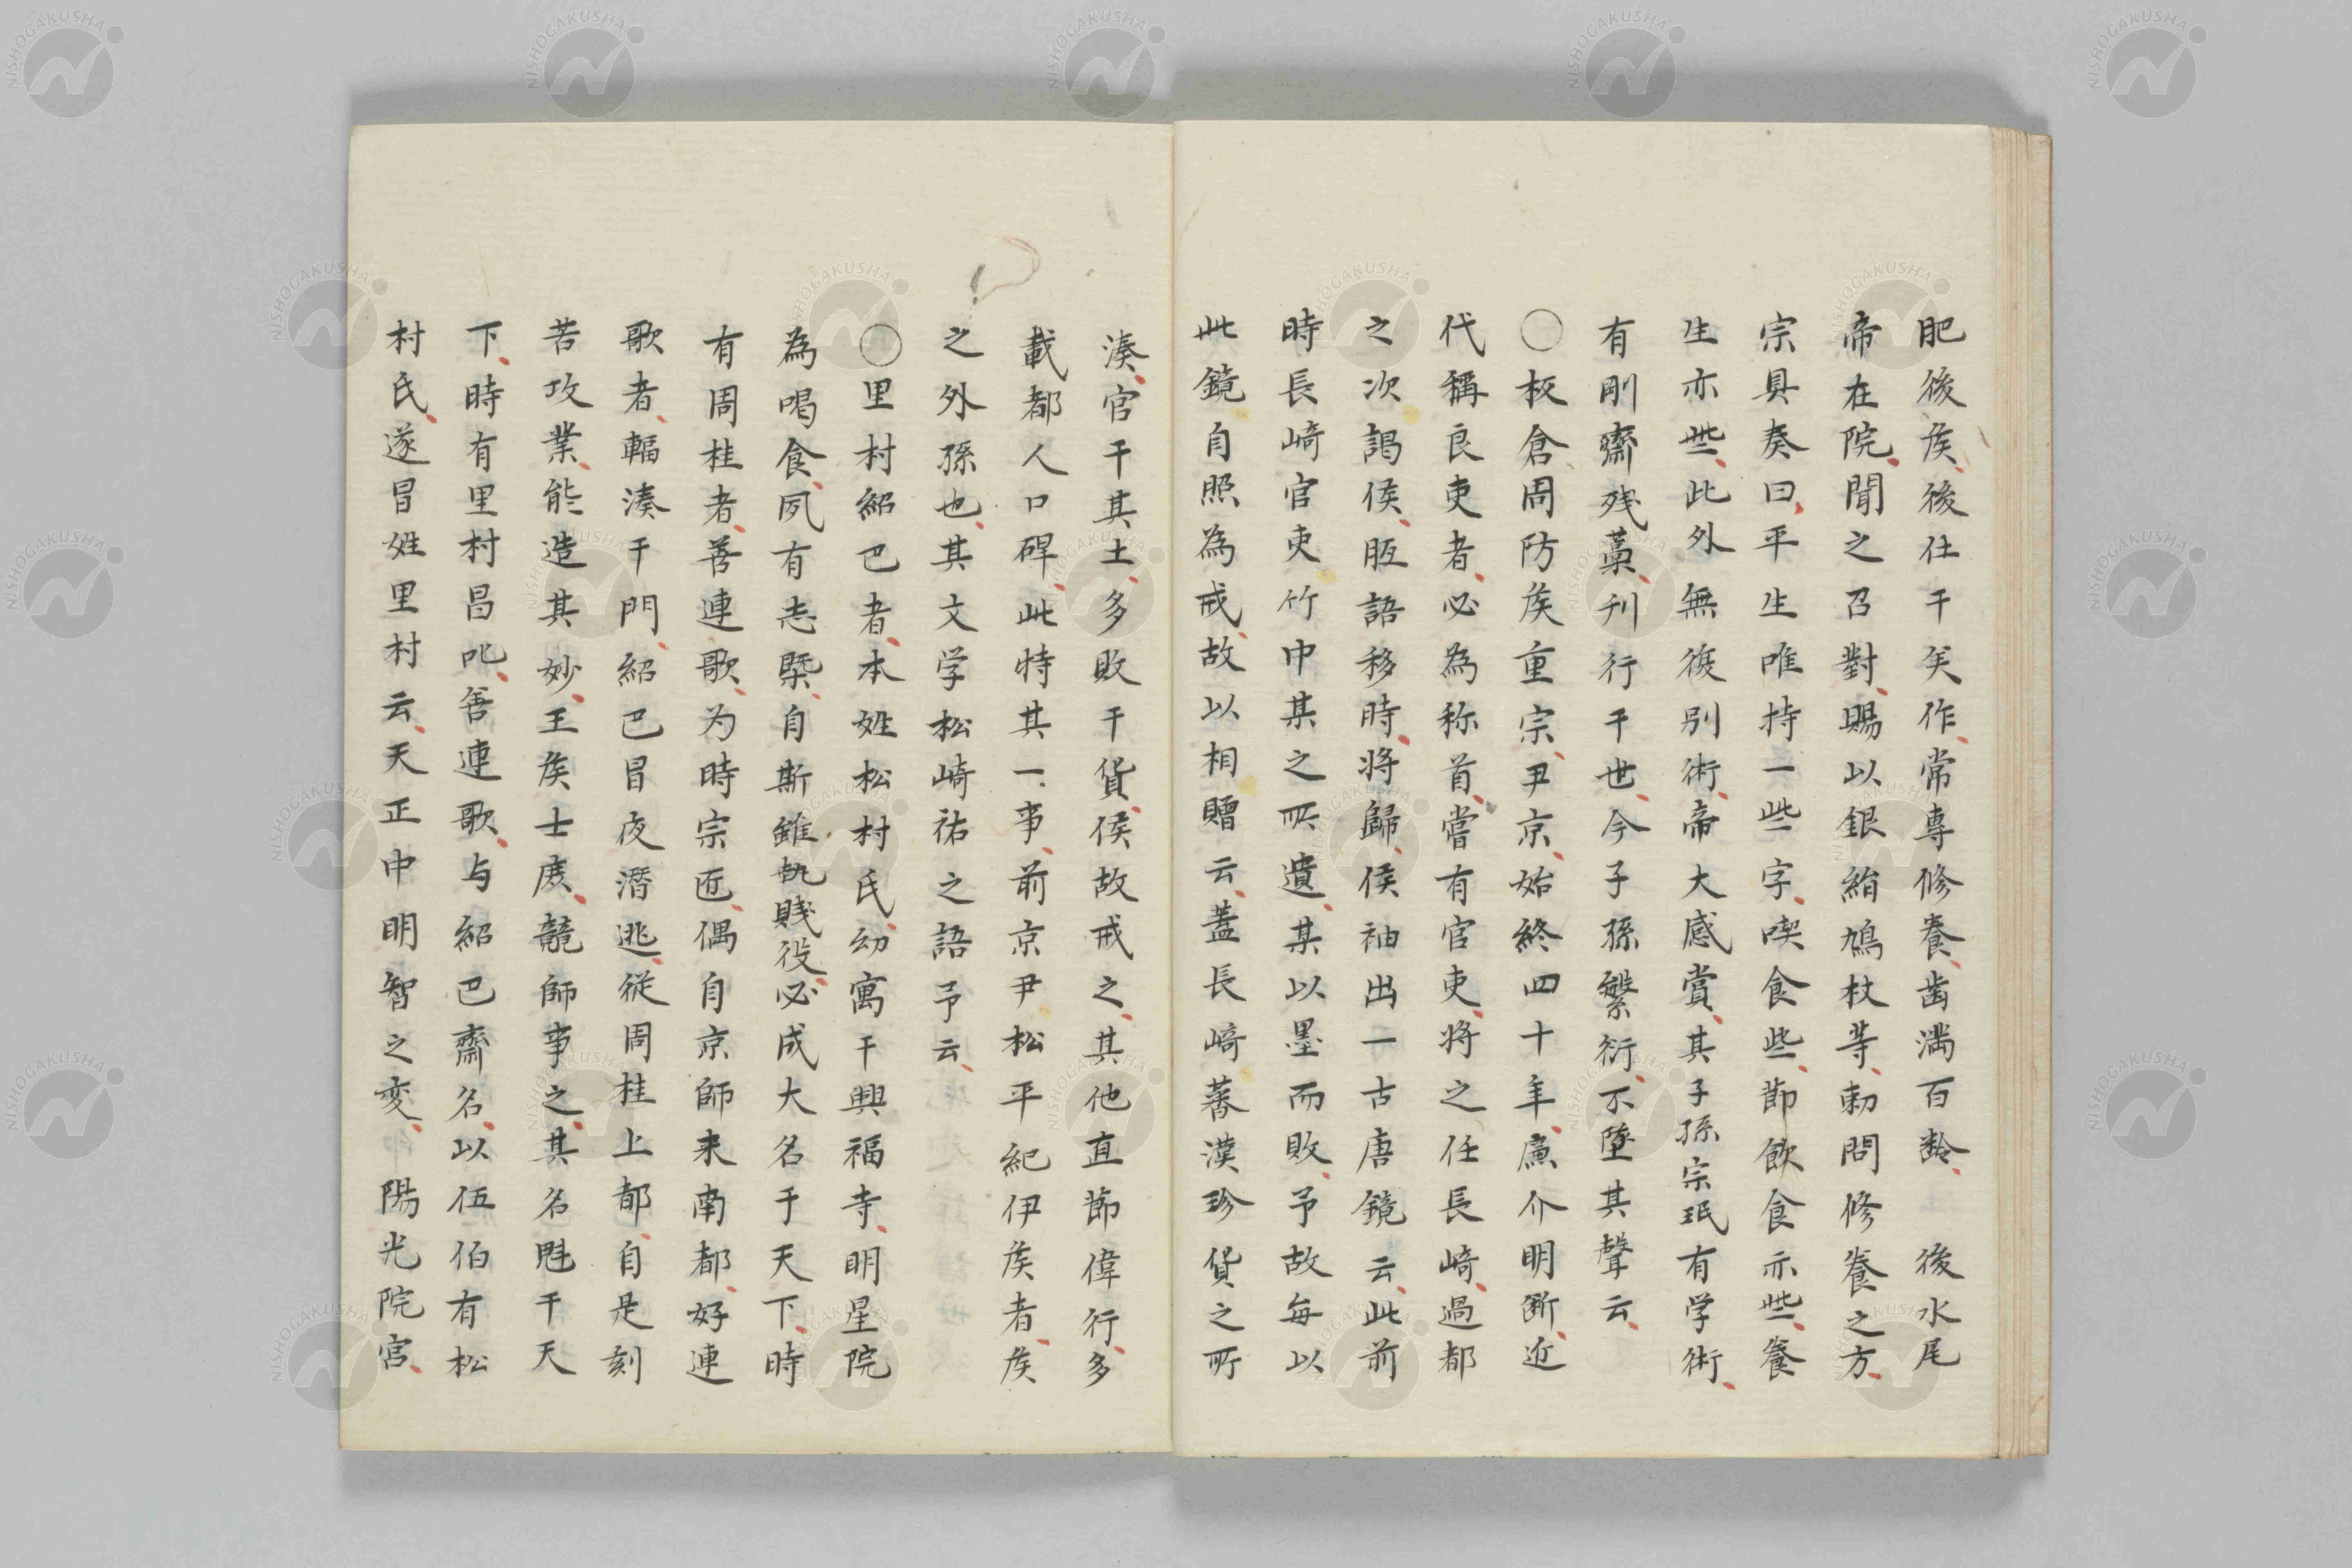 肥後矦後仕于矦作常專修養齒満百齡　後水尾
帝在院聞之召對賜以銀絹鳩杖等勅問修養之方
宗具奏曰平生唯持一些字喫食些節飲食亦些養
生亦些此外無復別術帝大感賞其子孫宗珉有学術
有剛齋残藁刋行于世今子孫繁衍不墜其聲云
○板倉周防矦重宗尹京始終四十年亷介明断近
代稱良吏者必為称首嘗有官吏将之任長崎過都
之次謁侯晤語移時将歸侯袖出一古唐鏡云此前
時長崎官吏竹中某之所遺某以墨而敗予故毎以
此鏡自照為戒故以相贈云蓋長崎蕃漢珍貨之所
湊官于其土多敗于貨侯故戒之其他直節偉行多
載都人口碑此特其一事前京尹松平紀伊矦者矦
之外孫也其文学松崎祐之語予云
○里村紹巴者本姓松村氏幼寓于興福寺明星院
為喝食夙有志槩自斯雖執賤役必成大名于天下時
有周桂者善連歌为時宗匠偶自京師来南都好連
歌者輻湊于門紹巴冒夜潛逃従周桂上都自是刻
苦攻業能造其妙王矦士庻競師事之其名魁于天
下時有里村昌叱善連歌与紹巴齋名以伍伯有松
村氏遂冒姓里村云天正中明智之変陽光院宮